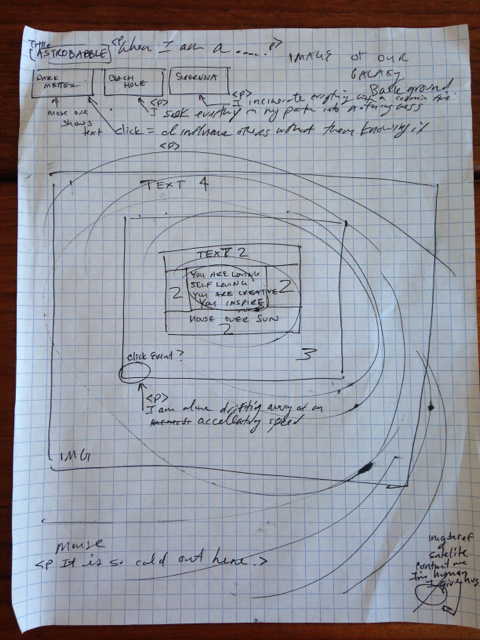 Title
ASTROBABBLE
<p> When I am a ..... p>
IMAGE of our
GALAXY
Background
DARK
MATTER
BLACK
HOLE
SUPERNOVA
<p>
I incinerate everything with a
<p>
I seek everything in my path into nothingness
mouse over
shows
text
click = I influence others without them knowing it
<p>
TEXT 4
TEXT 2
2
YOU ARE LOVING
SELF LOVING
YOU ARE CREATIVE
YOU INSPIRE
2
MOUSE OVER SUN
2
3
click Event?
<p>
I am alone drifting away at an
accellerating speed
IMG
Mouse
<p It is so cold out here.>
of
satelite
contact me
I'm human
I give hugs